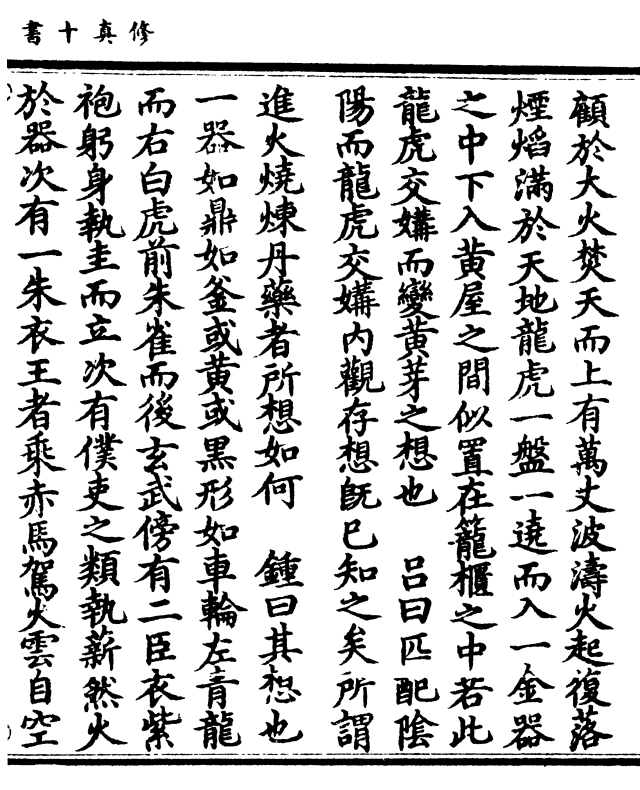 修真十書
顧於大火焚天而上有萬丈波濤火起復落
煙熖滿於天地龍虎一盤一遶而入一金器
之中下入黄屋之間似置在籠櫃之中若此
龍虎交媾而變黄芽之想也　吕曰匹配隂
陽而龍虎交媾内觀存想既已知之矣所謂
進火燒煉丹藥者所想如何　鍾曰其想也
一器如鼎如釜或黄或黒形如車輪左青龍
而右白虎前朱雀而後玄武傍有二臣衣紫
袍躬身執圭而立次有僕吏之類執薪然火
於器次有一朱衣王者乘赤馬駕火雲自空